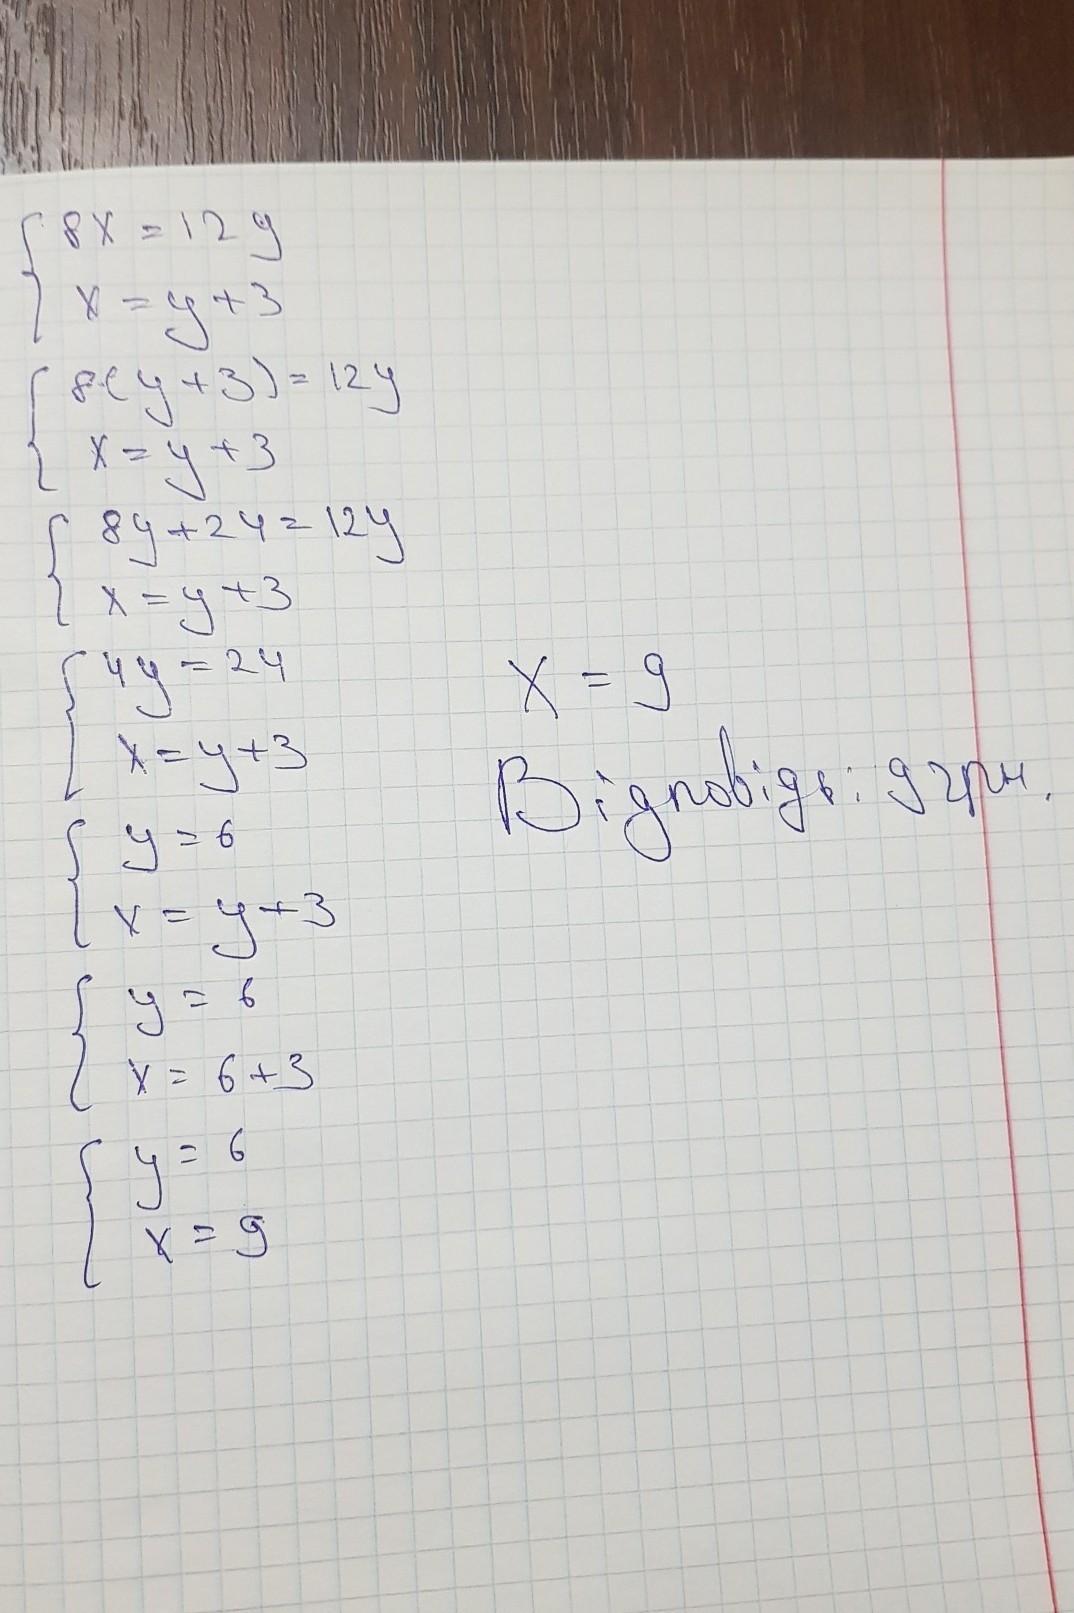 8x = 12y
x = y + 3
8(y + 3) = 12y
x = y + 3
8y + 24 = 12y
x = y + 3
4y = 24
x = y + 3
y = 6
x = y + 3
y = 6
x = 6 + 3
y = 6
x = 9
x = 9
Відповідь: 9 грн.